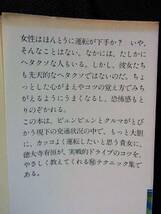 女性はほんとうに運転が下手か？　いや、
そんなことはない。なかには、たしかに
ヘタクソな人もいる。しかし、彼女たち
も先天的なヘタクソではないのだ。ちょ
っとした心がまえやコツの覚え方でみち
がえるようにうまくなるし、恐怖感もと
りのぞかれる。
この本は、ビュンビュンとクルマがとび
かう現下の交通状況の中で、もっと大胆に、
カッコよく運転したいと思う貴女に、
徳大寺有恒が、実戦的ドライブのコツを、
やさしく教えてくれる㊙テクニック集で
ある。